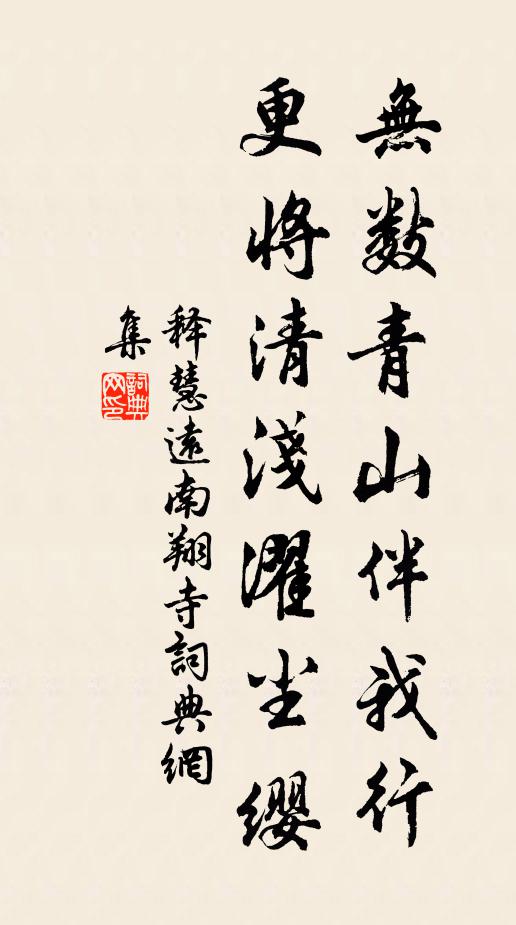 無數青山伴我行
更將清淺濯尘纓
释慧遠南翔寺詞典網
集
詞典网印